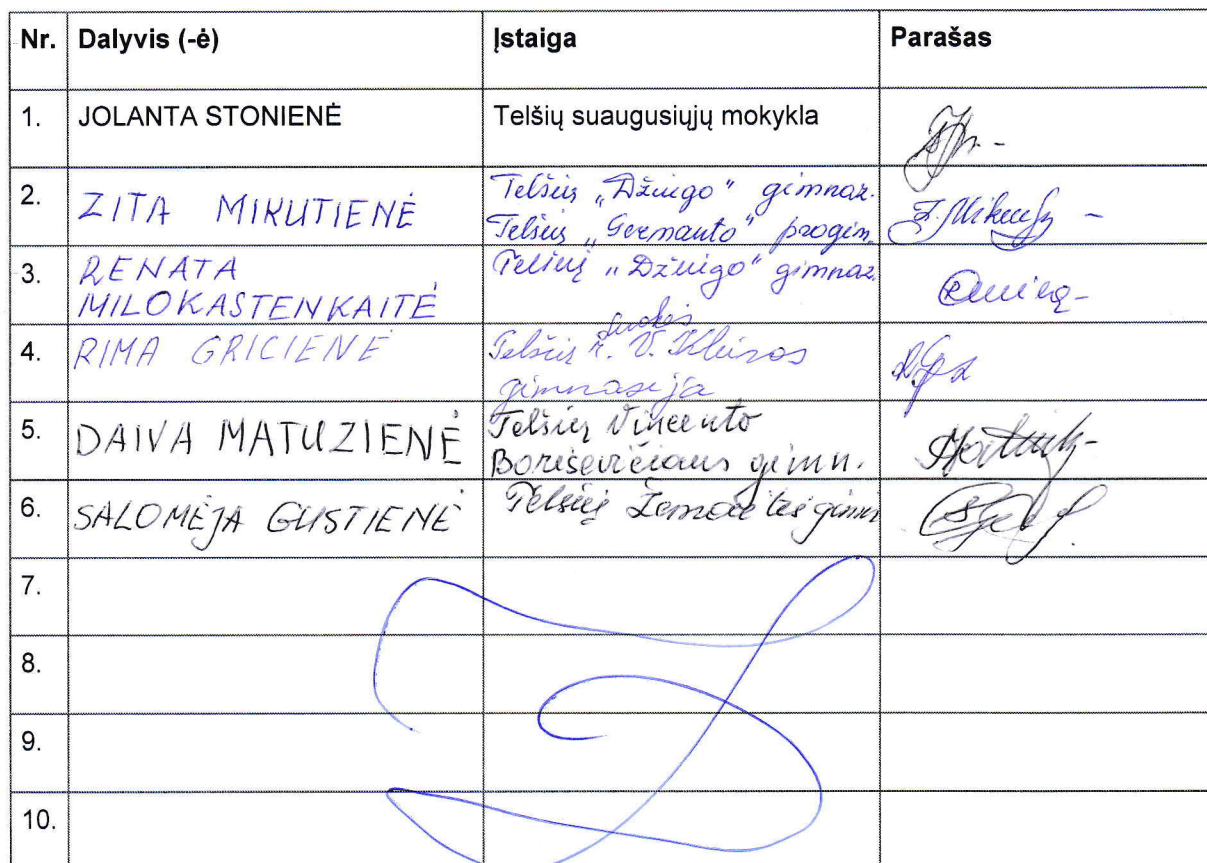 Nr. Dalyvis (-ė) Įstaiga Parašas
1. JOLANTA STONIENĖ Telšių suaugusiųjų mokykla
2. ZITA MIKUTIENĖ Telšių „Džiugo" gimnaz.
Telšių „Germanto" progim.
3. RENATA Telšių „Džiugo" gimnaz.
MILOKASTENKAITĖ
4. RIMA GRICIENĖ Telšių r. Luokės V. Kleinos
gimnasija
5. DAIVA MATUZIENĖ Telšių Vincento
Borisevičiaus gimn.
6. SALOMĖJA GUSTIENĖ Telšių Žemaitės gimn
7.
8.
9.
10.